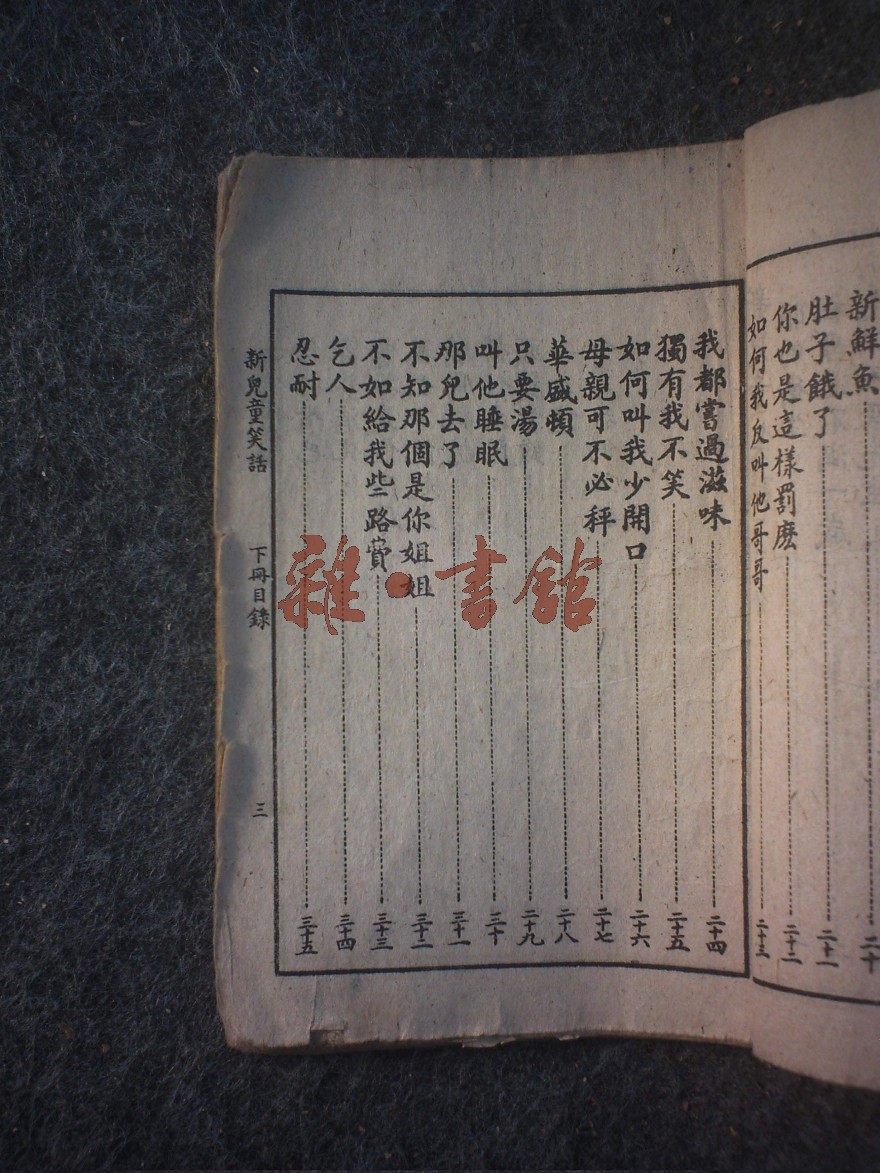 新鮮魚 二十
肚子餓了 二十一
你也是這樣罰麽 二十二
如何我反叫他哥哥 二十三
我都嘗過滋味 二十四
獨有我不笑 二十五
如何叫我少開口 二十六
母親可不必秤 二十七
華盛頓 二十八
只要湯 二十九
叫他睡眠 三十
那兒去了 三十一
不知那個是你姐姐 三十二
不如給我些路費 三十三
乞人 三十四
忍耐 三十五
新兒童笑話 下冊目錄 三
雜·書館